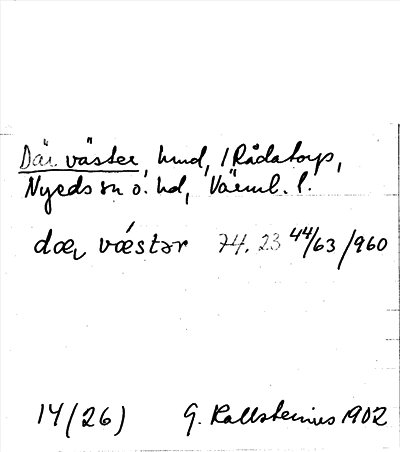 Där väster, hmd, / Rådatorp,
Nyeds sn o. hd, Värml. l.
dæ, vǽstər 74. 23 44/63/960
14(26) G. Kallstenius 1902